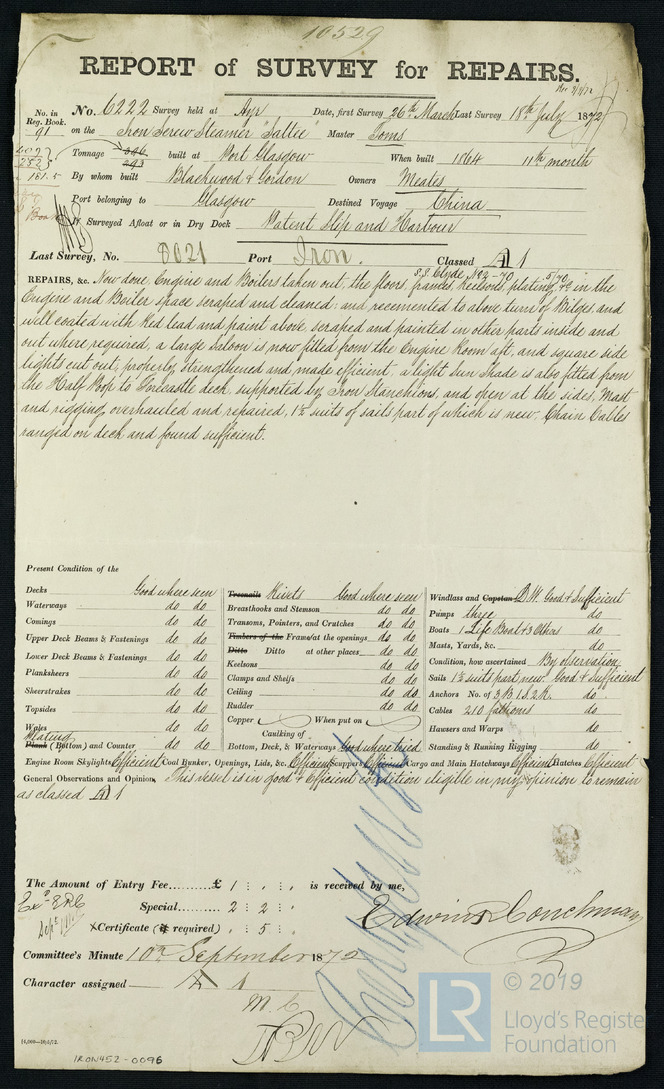 10529
REPORT of SURVEY for REPAIRS.
No. in Reg. Book. 91
No. 6222 Survey held at Ayr Date, first Survey 26th March Last Survey 18th July 1872
on the Iron Screw Steamer "Sallie" Master Toms
Tonnage 396 293 built at Port Glasgow When built 1864 11th month
181.5 By whom built Blackwood & Gordon Owners Meates
Port belonging to Glasgow Destined Voyage China
If Surveyed Afloat or in Dry Dock Patent Slip and Harbour
Last Survey, No. 8021 Port Iron. Classed A 1
S.S. Clyde No 2-70 5/70
REPAIRS, &c. Now done, Engine and Boilers taken out, the floors, frames, keelsons, plating &c in the
Engine and Boiler space scraped and cleaned: and recemented to above turn of Bilges, and
well coated with Red lead and paint above scraped and painted in other parts inside and
out where required, a large Saloon is now fitted from the Engine Room aft, and square side
lights cut out, properly strengthened and made efficient, a light Sun Shade is also fitted from
the Half Poop to Forecastle deck, supported by Iron Stanchions, and open at the sides, Mast
and rigging overhauled and repaired, 1½ suits of sails part of which is new, Chain Cables
ranged on deck and found sufficient.
Present Condition of the
Decks Good where seen
Waterways do do
Comings do do
Upper Deck Beams & Fastenings do do
Lower Deck Beams & Fastenings do do
Planksheers do do
Sheerstrakes do do
Topsides do do
Wales do do
Plating
Plank (Bottom) and Counter do do
Treenails Rivets Good where seen
Breasthooks and Stemson do do
Transoms, Pointers, and Crutches do do
Timbers of the Frame at the openings do do
Ditto Ditto at other places do do
Keelsons do do
Clamps and Shelfs do do
Ceiling do do
Rudder do do
Copper When put on
Caulking of
Bottom, Deck, & Waterways Good where tried
Windlass and Capstan P.W. Good & Sufficient
Pumps three do
Boats 1 Life Boat & 3 Others do
Masts, Yards, &c. do
Condition, how ascertained By observation
Sails 1½ suits part new Good & Sufficient
Anchors No. of 3 B 1 S. 2 K. do
Cables 210 fathoms do
Hawsers and Warps do
Standing & Running Rigging do
Engine Room Skylights Efficient Coal Bunker, Openings, Lids, &c. Efficient Scuppers Efficient Cargo and Main Hatchways Efficient Hatches Efficient
General Observations and Opinion, This vessel is in good & Efficient condition eligible in my opinion to remain
as classed A 1
The Amount of Entry Fee £ 1 : : is received by me,
Special 2 : 2 :
Certificate (if required) : 5 :
Edwin Couchman
Committee's Minute 10th September 1872
Character assigned A 1
M.C.
IRON452-0096
LR
© 2019
Lloyd's Registe
Foundation